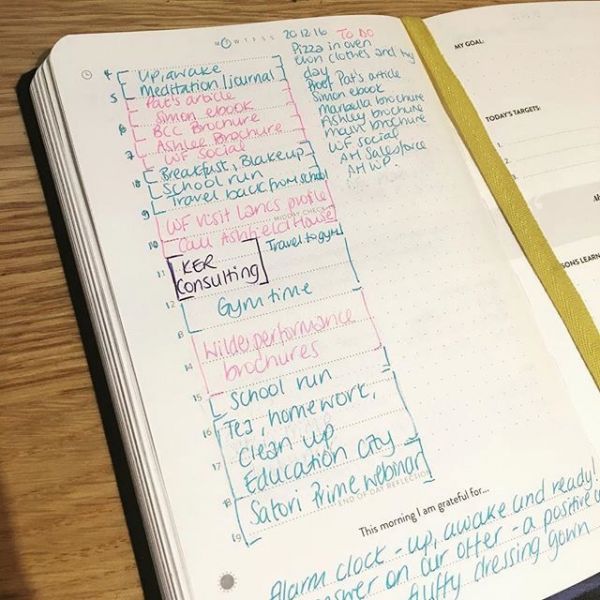 20 12 16 TO DO
Pizza in oven
day
Prof Pat's article
Simon ebook
Marbella brochure
Ashley brochure
brochure
WF social
AH Salesforce
AH WP
4 Up, awake
Meditation/journal
5 Pat's article
Simon ebook
6 BCC Brochure
Ashlee Brochure
7 WF Social
8 Breakfast, Blake up
School run
9 Travel back from school
WF visit Lancs profile
MIDDAY CHECK-IN
10 Call Ashfield House
Travel to gym
11 KER
Consulting
12 Gym time
13
Wilde performance
14 brochures
15 School run
16 Tea, homework,
Clean up
17 Education City
18 Satori Prime webinar
END OF DAY REFLECTION
19
This morning I am grateful for...
Alarm clock - up, awake and ready!
answer on our offer - a positive
fluffy dressing gown
MY GOAL:
TODAY'S TARGETS:
1.
2.
3.